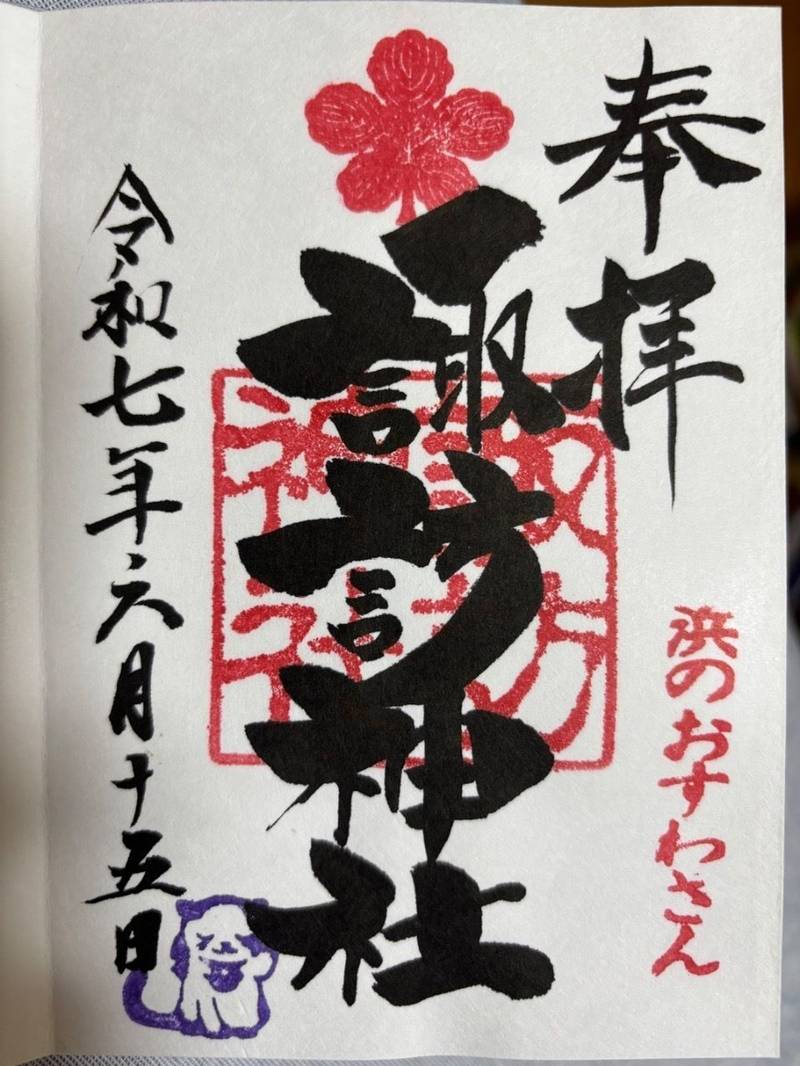 奉拝
浜のおすわさん
諏訪神社
諏訪
神社
令和七年六月十五日